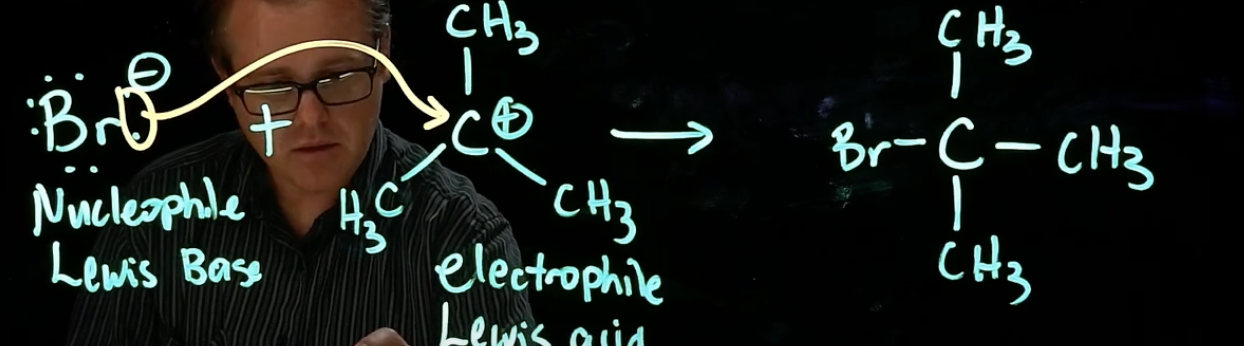 CH3
:Br: ⊖ + C ⊕ → Br-C-CH3
H3C CH3
CH3
CH3
Nucleophile
Lewis Base
electrophile
Lewis acid